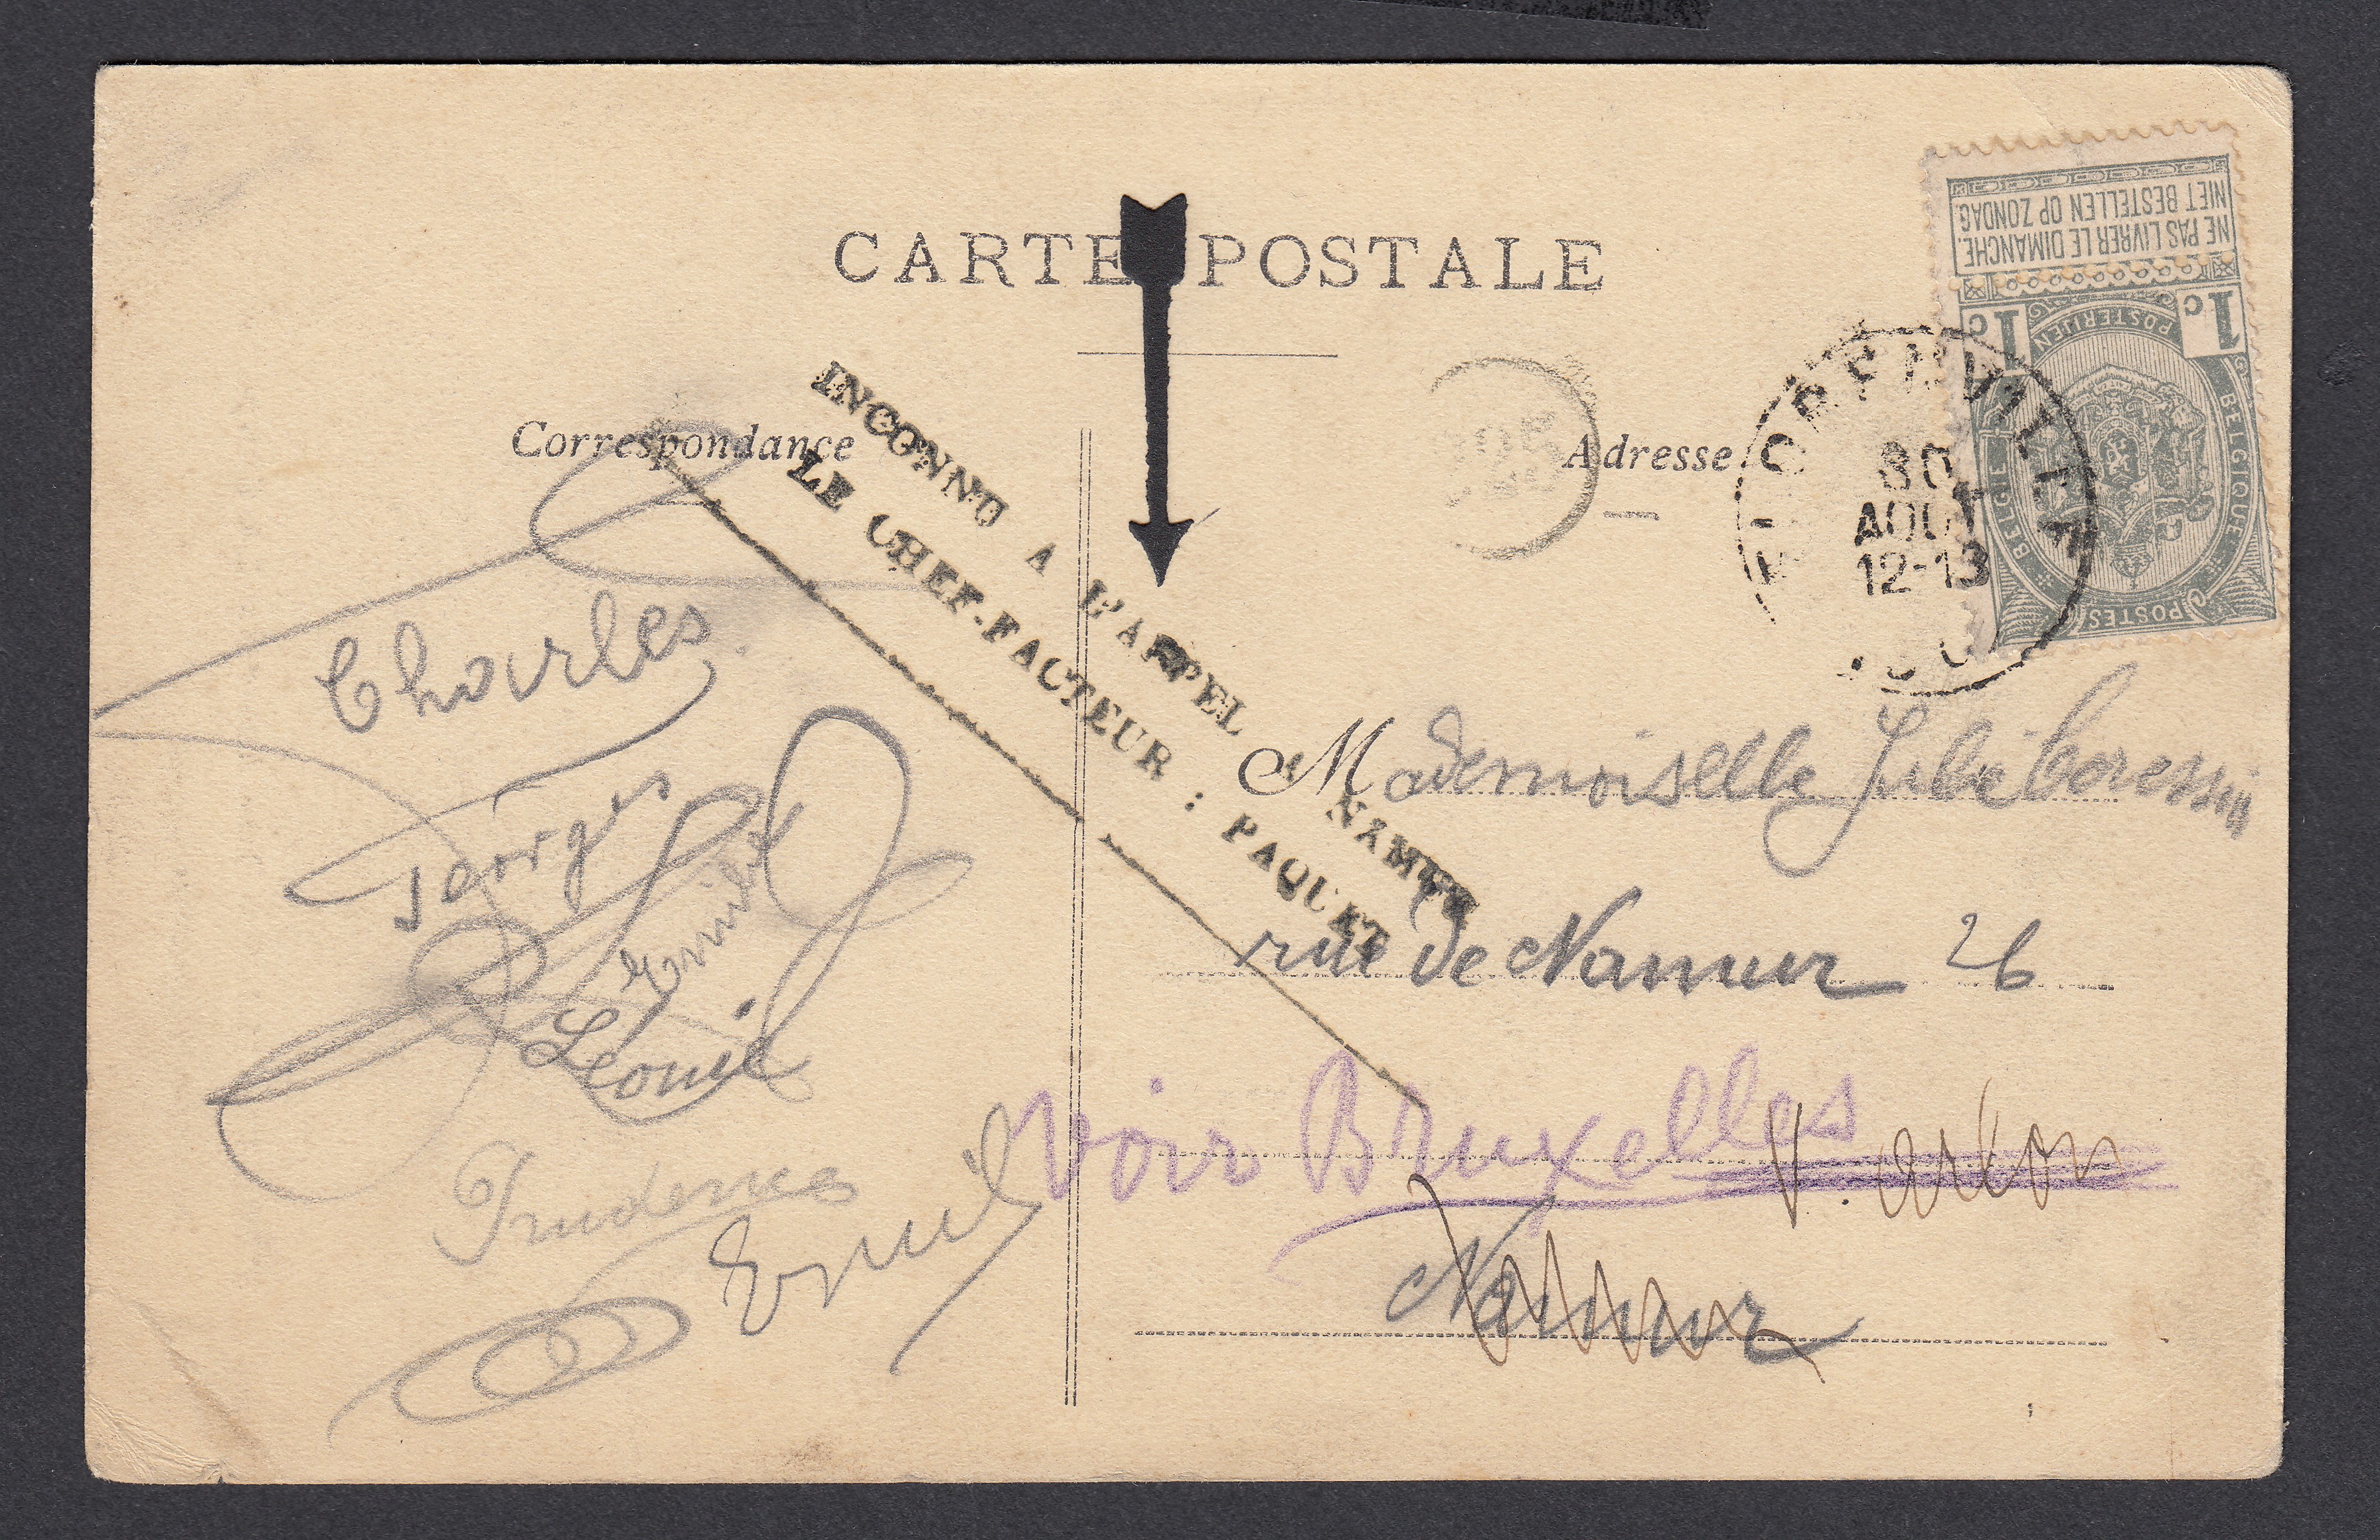 CARTE POSTALE
NE PAS LIVRER LE DIMANCHE.
NIET BESTELLEN OP ZONDAG.
1c 1c
POSTERIJEN
BELGIË BELGIQUE
POSTES
Correspondance
Adresse
30
AOUT
12-13
INCONNU A L'APPEL NAMUR
LE CHEF-FACTEUR : PAQUET
Charles
Géorges
Emile
Léonie
Prudence
Emile
Mademoiselle Julie
rue de Namur 26
voir Bruxelles
V. Arlon
Namur